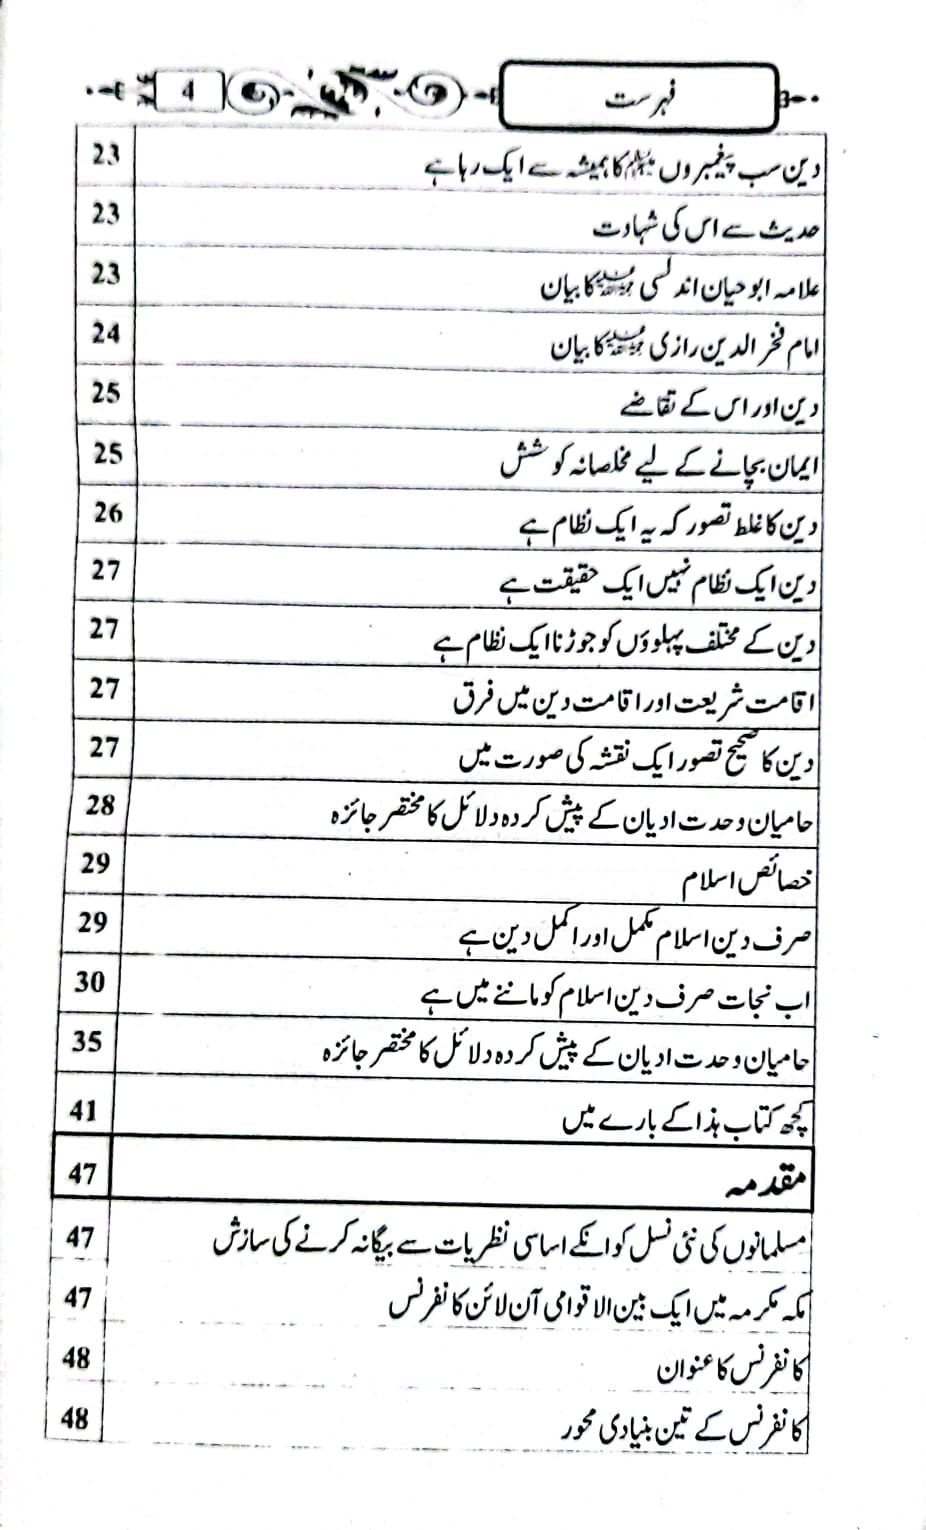 فہرست 4
دین سب پیغمبروں ﷺ کا ہمیشہ سے ایک رہا ہے 23
حدیث سے اس کی شہادت 23
علامہ ابو حیان اندلسی رحمۃ اللہ علیہ کا بیان 23
امام فخر الدین رازی رحمۃ اللہ علیہ کا بیان 24
دین اور اس کے تقاضے 25
ایمان بچانے کے لیے مخلصانہ کوشش 25
دین کا غلط تصور کہ یہ ایک نظام ہے 26
دین ایک نظام نہیں ایک حقیقت ہے 27
دین کے مختلف پہلوؤں کو جوڑنا ایک نظام ہے 27
اقامت شریعت اور اقامت دین میں فرق 27
دین کا صحیح تصور ایک نقشہ کی صورت میں 27
حامیان وحدت ادیان کے پیش کردہ دلائل کا مختصر جائزہ 28
خصائص اسلام 29
صرف دین اسلام مکمل اور اکمل دین ہے 29
اب نجات صرف دین اسلام کو ماننے میں ہے 30
حامیان وحدت ادیان کے پیش کردہ دلائل کا مختصر جائزہ 35
کچھ کتاب ہذا کے بارے میں 41
مقدمہ 47
مسلمانوں کی نئی نسل کو انکے اساسی نظریات سے بیگانہ کرنے کی سازش 47
مکہ مکرمہ میں ایک بین الاقوامی آن لائن کانفرنس 47
کانفرنس کا عنوان 48
کانفرنس کے تین بنیادی محور 48